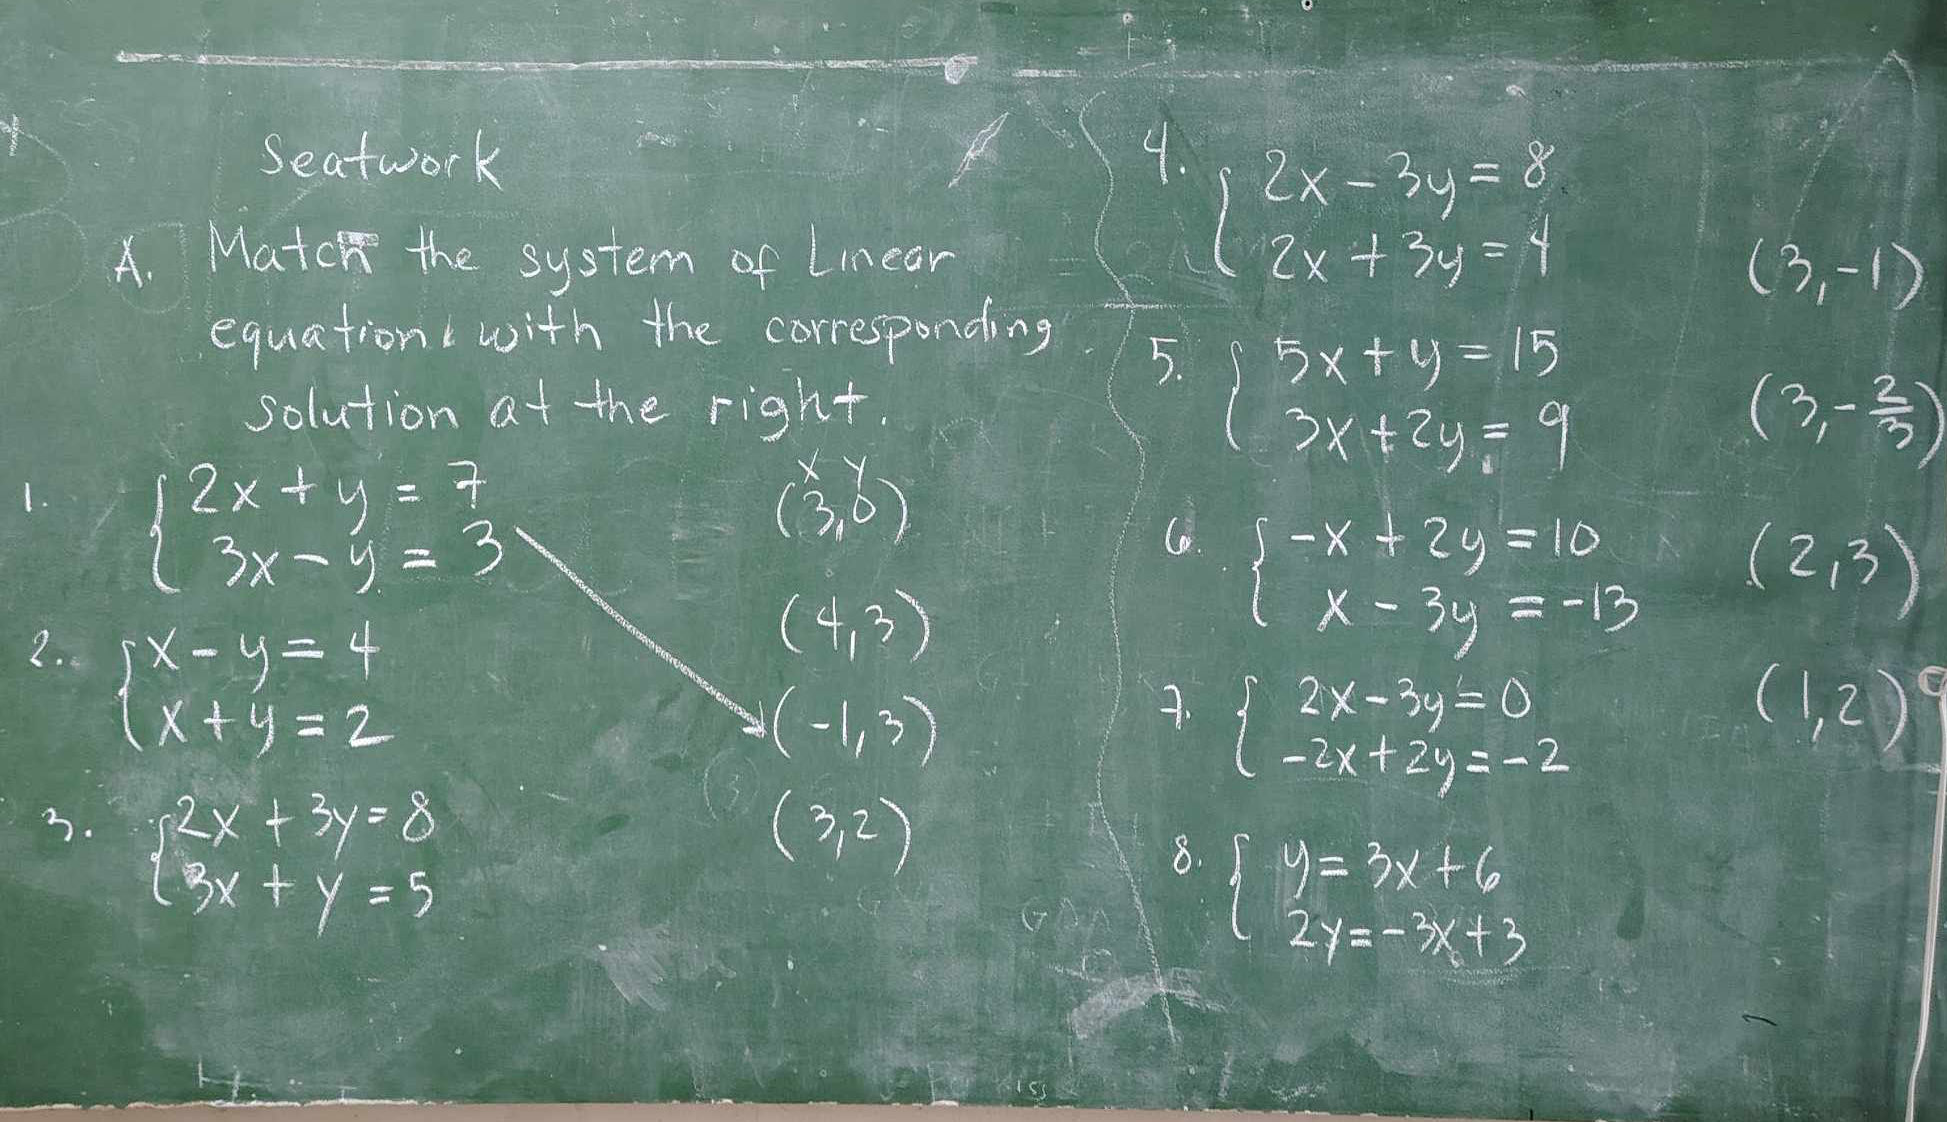 Seatwork
A. Match the system of Linear
equation with the corresponding
solution at the right.
1. 2x + y = 7
3x - y = 3
2. x - y = 4
x + y = 2
3. 2x + 3y = 8
3x + y = 5
x y
(3,0)
(4,3)
(-1,3)
(3,2)
4. 2x - 3y = 8
2x + 3y = 4
5. 5x + y = 15
3x + 2y = 9
6. -x + 2y = 10
x - 3y = -13
7. 2x - 3y = 0
-2x + 2y = -2
8. y = 3x + 6
2y = -3x + 3
(3,-1)
(3,-2/3)
(2,3)
(1,2)